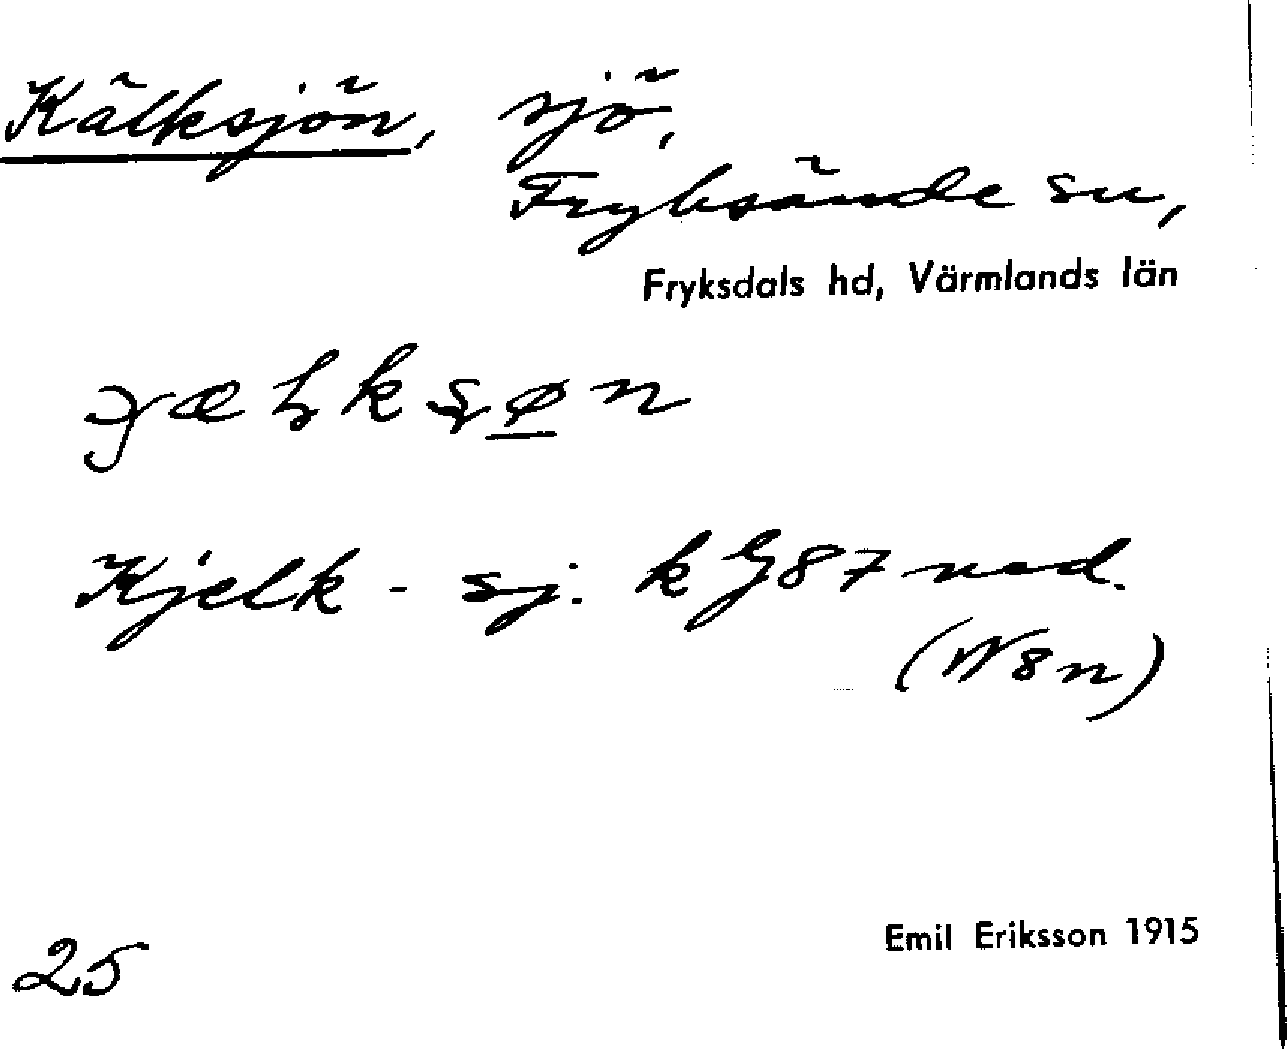 Kälksjön, sjö,
Fryksände sn,
Fryksdals hd, Värmlands län
Kjelk - sj. k G87 ned.
(W8n)
Emil Eriksson 1915
25